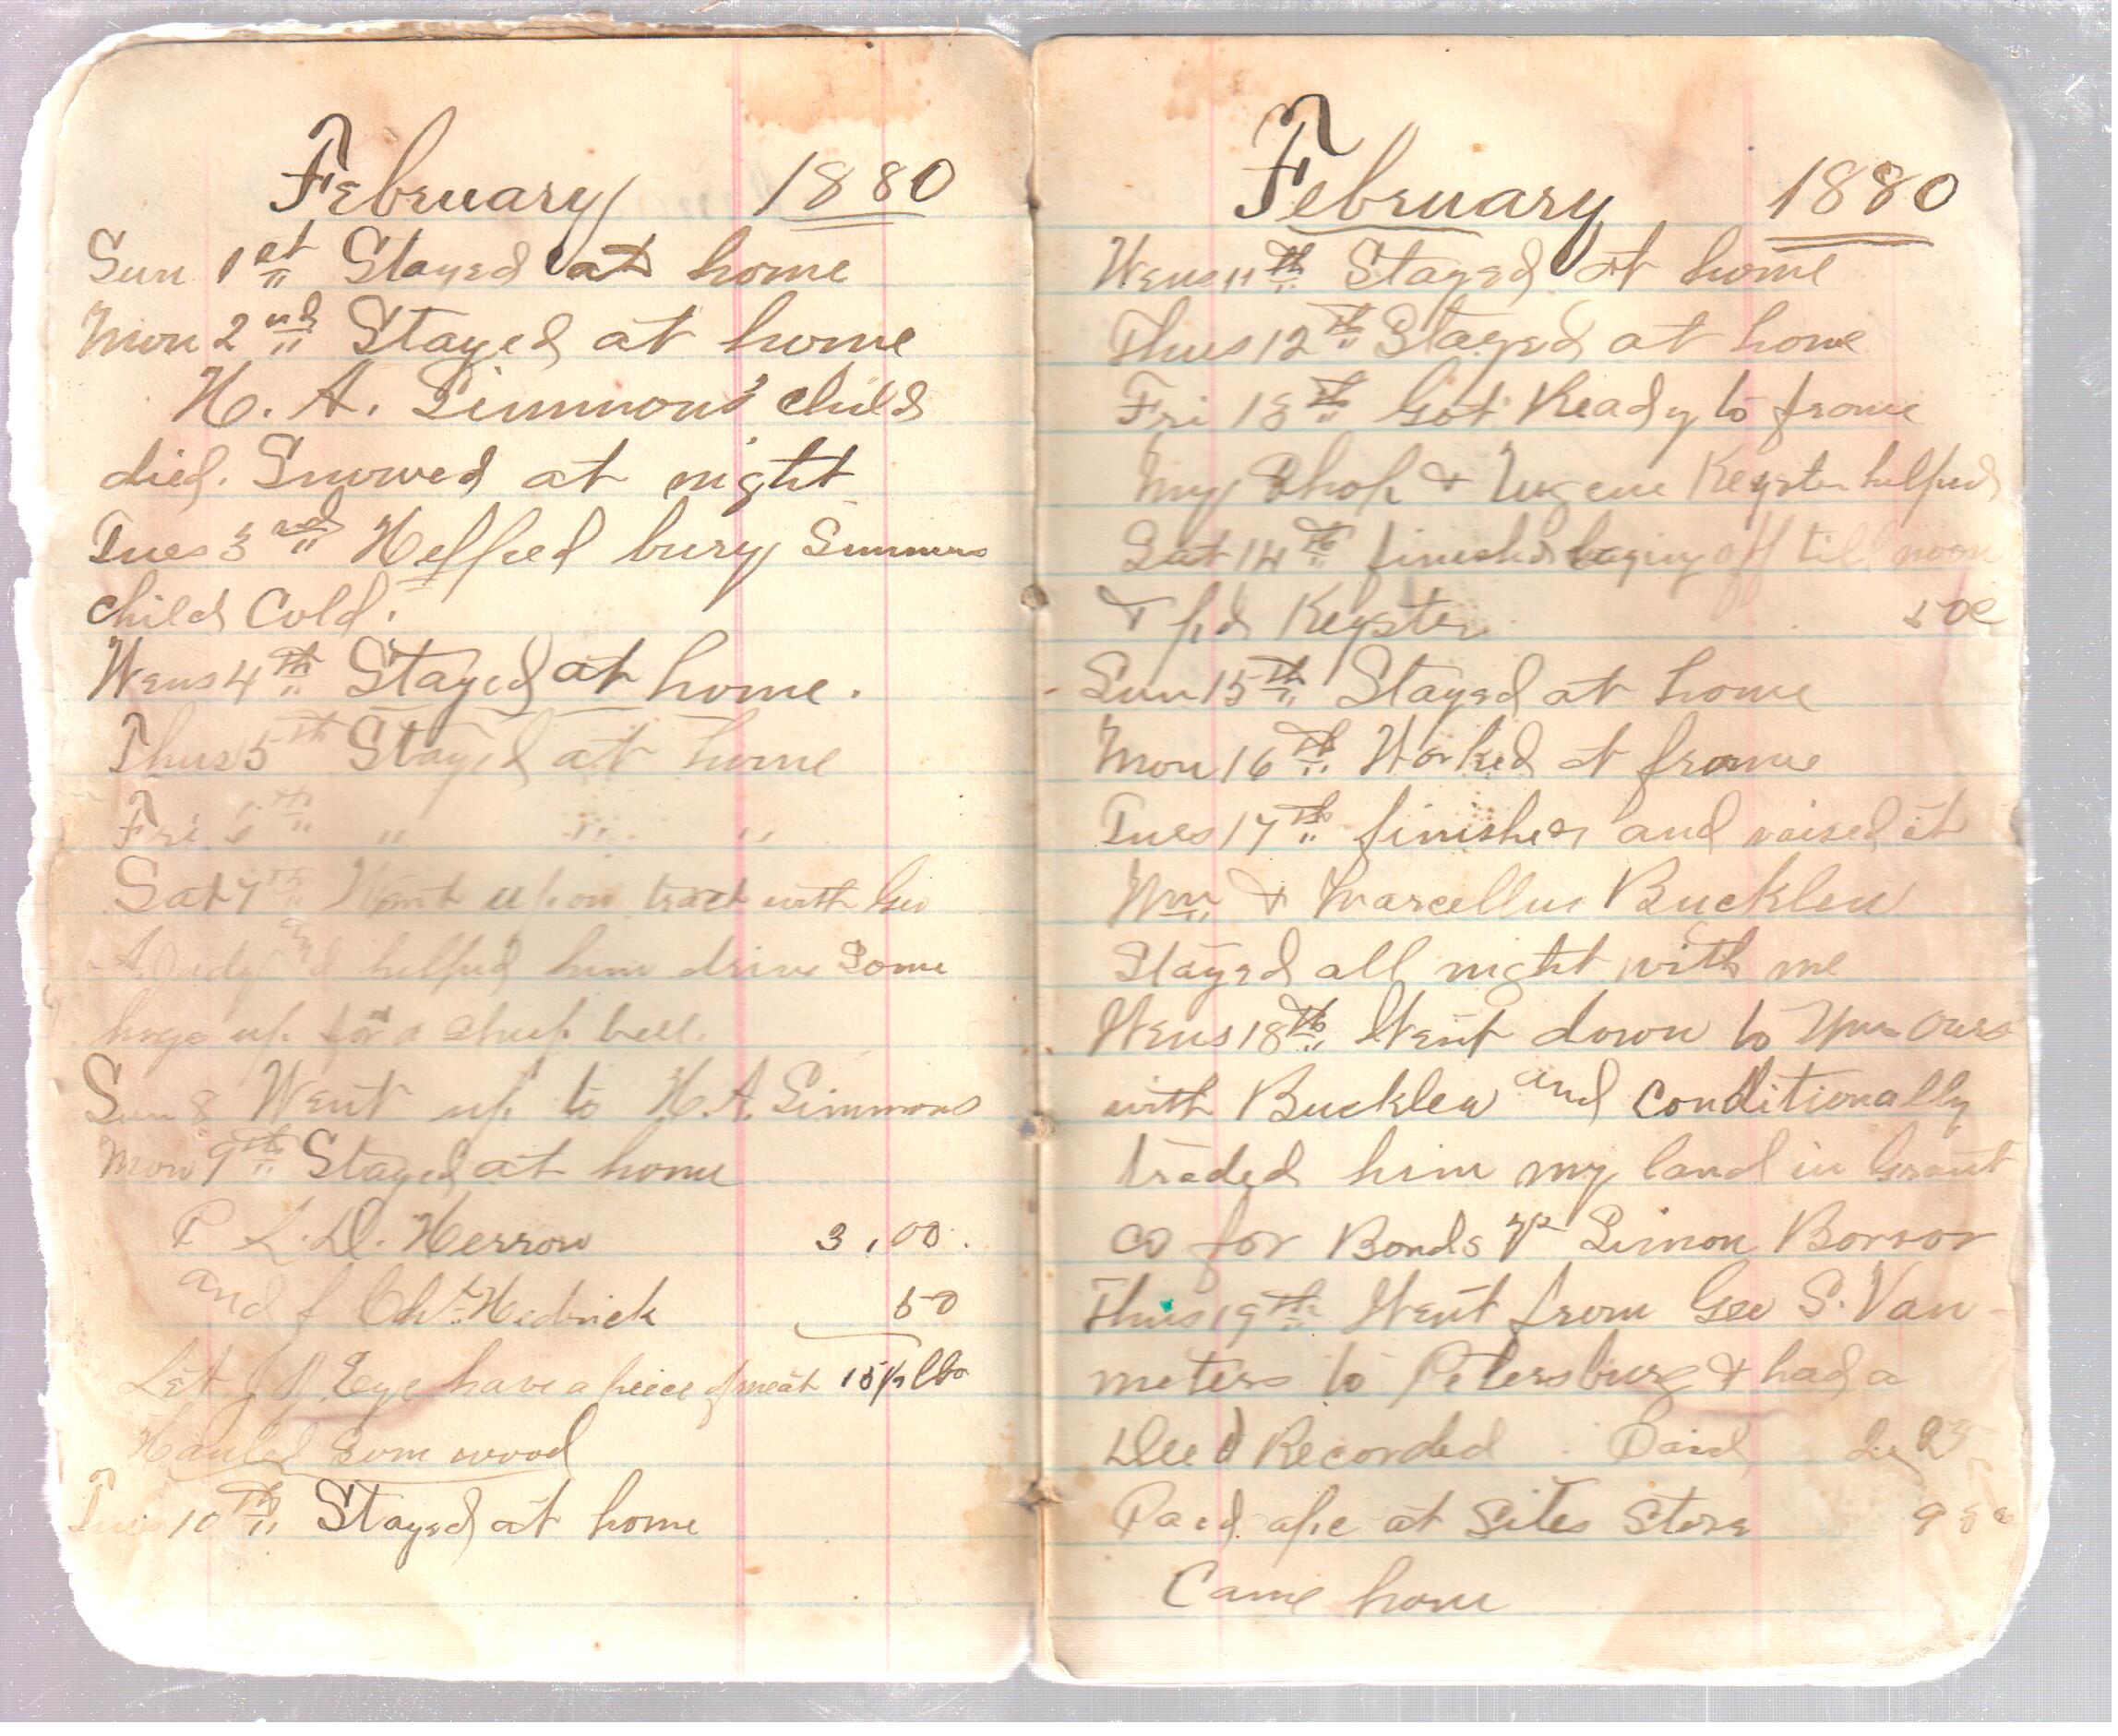 February 1880
Sun 1st Stayed at home
Mon 2nd Stayed at home
H. A. Simmons' child
died. Snowed at night
Tues 3rd Helped bury Simmons
child Cold.
Wens 4th Stayed at home.
Thus 5th Stayed at home
Fri 6th " " "
Sat 7th Went up on tract with Geo
A. Judy and helped him drive some
hogs up for a sheep bell.
Sun 8 Went up to H. A. Simmons
Mon 9th Stayed at home
P L. D. Herron 3,00.
and f Chs Hedrick 50
Let J. J. Eye have a peice of meat 15½ lbs
Hauled som wood
Tues 10th Stayed at home
February 1880
Wens 11th Stayed at home
Thus 12th Stayed at home
Fri 13th Got Ready to frame
My Shop & Eugene Keyster helped
Sat 14th finished laying off till noon
& pd Keyster 50c
Sun 15th Stayed at home
Mon 16th Worked at frame
Tues 17th finished and raised it
Wm & Marcellus Bucklew
Stayed all night with me
Wens 18th Went down to Wm Ours
with Bucklew and Conditionally
traded him my land in Grant
co for Bonds vs Simon Borror
Thus 19th Went from Geo S. Van-
meters to Petersburg & had a
Deed Recorded. Paid 2,25
Paid a/c at Sites Store 98c
Came home